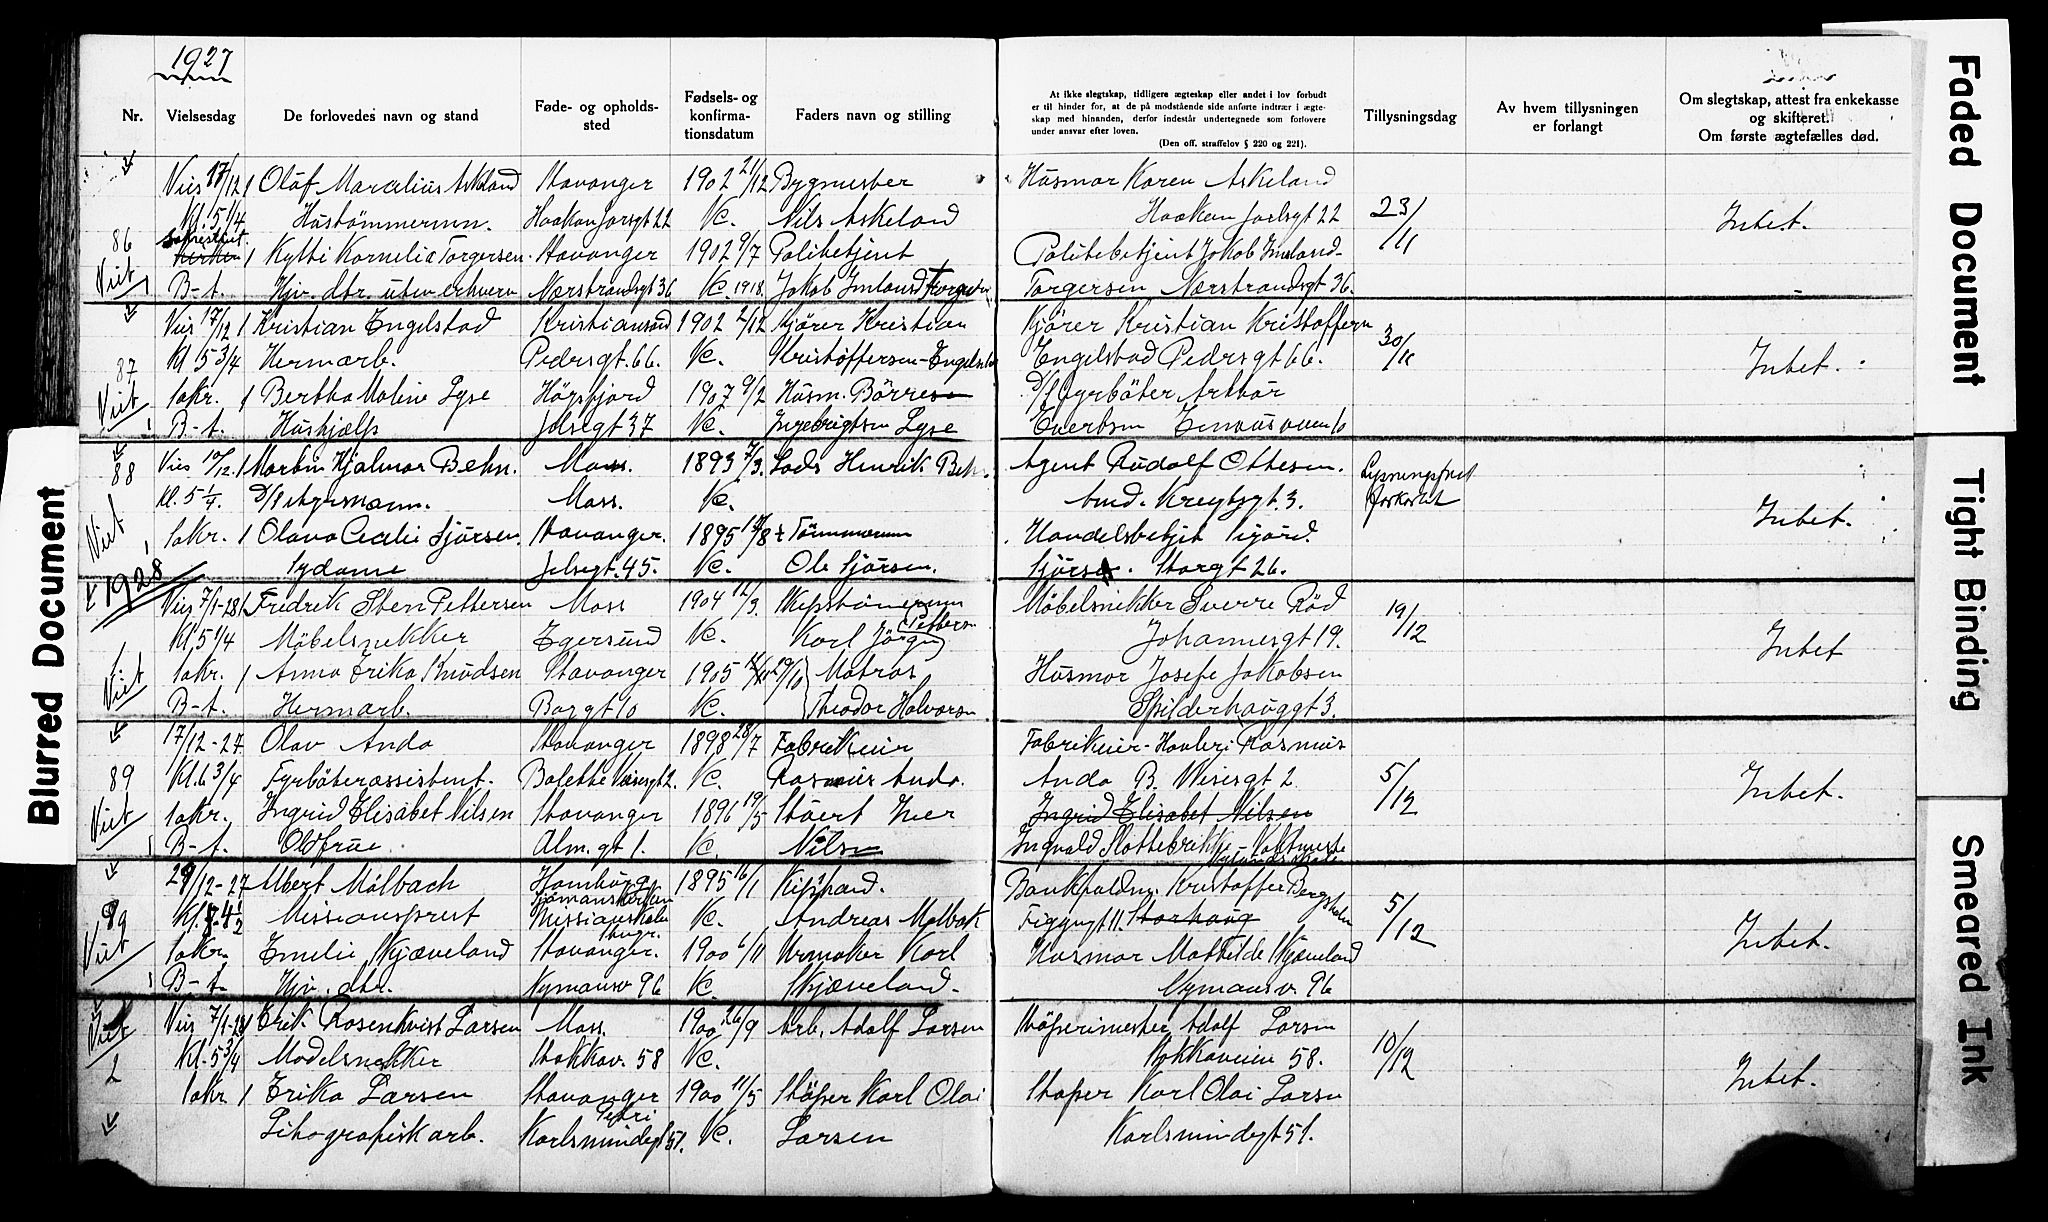 1927
Nr.
Vielsesdag
De forlovedes navn og stand
Føde- og opholds-
sted
Fødsels- og
konfirma-
tionsdatum
Faders navn og stilling
At ikke slegtskap, tidligere ægteskap eller andet i lov forbudt
er til hinder for, at de på modstående side anførte indtrær i ægte-
skap med hinanden, derfor indestår undertegnede som forlovere
under ansvar efter loven.
(Den off. straffelov § 220 og 221).
Tillysningsdag
Av hvem tillysningen
er forlangt
Om slegtskap, attest fra enkekasse
og skifteret.
Om første ægtefælles død.
Vies 17/12 1 Olaf Marcelius Askeland Stavanger 1902 21/12 Bygmester Husmor Karen Askeland
Kl 5 1/4 Hustømmermn. Haakon Jarlsgt 22 Vc. Nils Askeland Haakon Jarlsgt 22 23/11 Intet.
86 sakristiet. 1 Kytti Kornelia Torgersen Stavanger 1902 9/7 Politibetjent Politibetjent Jakob Imsland-
Viet B-t. Hjv. dtr. uten erhverv Nærstrandsgt 36 Vc. 1918. Jakob Imsland Torgersen Torgersen Nærstrandsgt 36.
Vies 17/12 1 Kristian Engelstad Kristiansand 1902 2/12 Kjører Kristian Kjører Kristian Kristoffersen
87 Kl 5 3/4 Hermarb. Pedrsgt. 66. Vc. Kristoffersen-Engelstad Engelstad Pedrsgt 66. 30/11 Intet.
Viet Sakr. 1 Bertha Maline Lyse Høgsfjord 1907 9/2 Husm. Børre D/S fyrbøter Arthur
B-t. Hushjælp Jelsegt 37 Vc. Ingebrigtsen Lyse Evertsen
88 Vies 10/12. 1 Martin Hjalmar Behn. Moss. 1893 7/3. Lods Henrik Behn. Agent Rudolf Ottesen. Lysningsfrist
Kl. 5 1/4. Moss. Vc. 3. forkortet Intet.
Viet Sakr. 1 Olava Cecilie Sjørsen. Stavanger. 1895 /8 Tømmermn Handelsbetjt Sigurd
Sydame Jelsegt. 45. Vc. Ole Sjørsen. Storgt 26.
1928
Vies 7/1-28 1 Fredrik Sten Pettersen Moss 1904 12/3. Skipstømermn Møbelsnekker Sverre Rød
Kl 5 1/4 Møbelsnekker Egersund Vc. Karl Jørgen Pettersen Johannesgt 19. 19/12 Intet
Viet Sakr. 1 Anna Erika Knudsen Stavanger 1905 Matros Husmor Josefe Jakobsen
B-t. Hermarb. Vc. Theodor Halvorsen Spilderhauggt 3.
17/12-27 Olav Anda Stavanger 1898 28/7 Fabrikeier Fabrikeier Rasmus
89 Kl. 6 3/4 Fyrbøterassistent. Bolette Wiesesgt 2. Vc. Rasmus Anda. Anda B. Wiesesgt 2 5/12 Intet.
Viet Sakr. Ingrid Elisabet Nilsen Stavanger 1896 19/5 Stuert Iver Ingrid Elisabet Nilsen
B-t. Oldfrue Alm. gt 1. Vc. Nilsen Ingvald Slottebrekke Vaktmester
29/12-27 Albert Mölbach Hamburg 1895 16/1 Bankfuldm. Kristoffer Bergsholm
89 Kl. 4 1/2 Missionsprest Sjømanskirken Missionsskolen Stvgr. Vc. Andreas Molbak Figgengt 11. Storhaug 5/12 Intet.
Viet Sakr. Emelie Skjæveland Stavanger. 1900 6/11 Urmaker Karl Husmor Mathilde Skjæveland
B-t. Hjv. dtr. Nymansv 96 Vc. Skjæveland. Nymansv. 96
Viet Vies 7/1-28 1 Erik Rosenkvist Larsen Moss. 1900 26/9 Arb. Adolf Larsen Støperimester Adolf Larsen
2 Kl. 5 3/4 Modelsnekker Stokkav. 58 Vc. Stokkaveien 58. 10/12 Intet.
Sakr 1 Erika Larsen Stavanger 1900 11/5 Støper Karl Olai Støper Karl Olai Larsen
Litografisk arb. Karlsmindegt 51. Vc. Larsen Karlsmindegt 51.
Blurred Document
Faded Document
Tight Binding
Smeared Ink